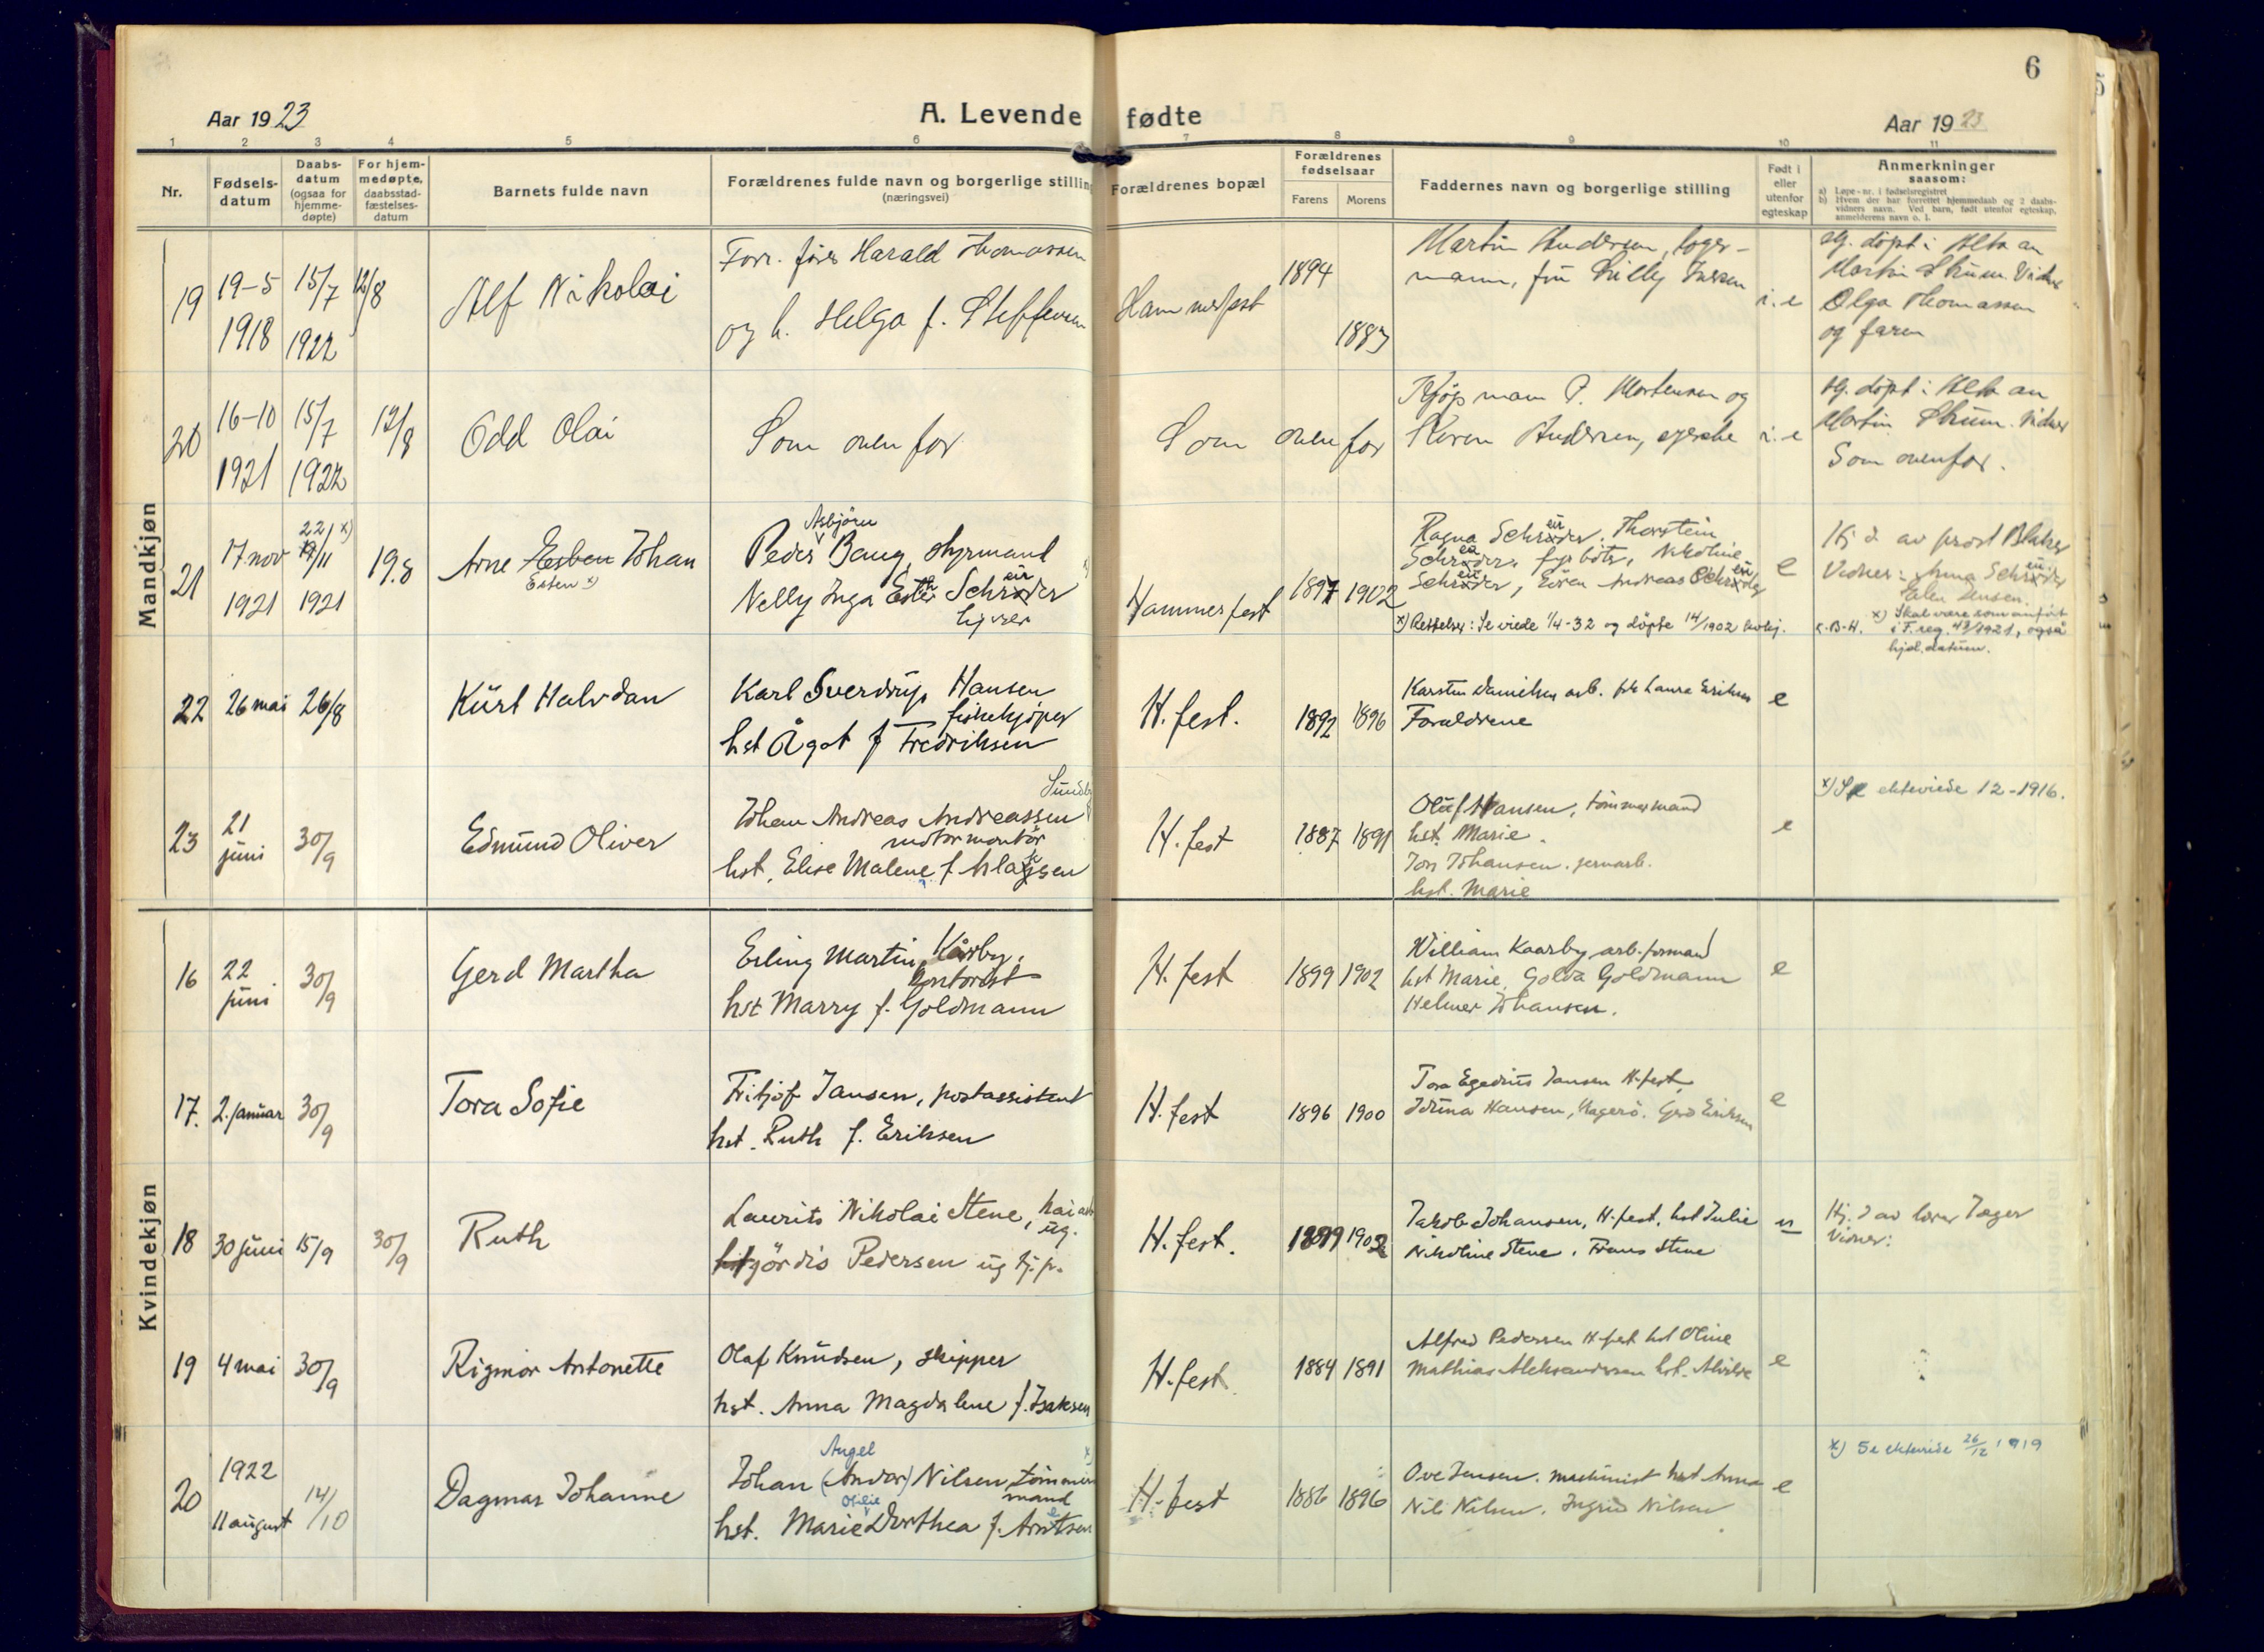 6
Aar 1923
A. Levende fødte
Aar 1923
1 2 3 4 5 6 7 8 9 10 11
Nr.
Fødsels-
datum
Daabs-
datum
(ogsaa for
hjemme-
døpte)
For hjem-
medøpte,
daabsstad-
fæstelses-
datum
Barnets fulde navn
Forældrenes fulde navn og borgerlige stilling
(næringsvei)
Forældrenes bopæl
Forældrenes
fødselsaar
Farens
Morens
Faddernes navn og borgerlige stilling
Født i
eller
utenfor
egteskap
Anmerkninger
saasom:
a) Løpe-nr. i fødselsregistret
b) Hvem der har forrettet hjemmedaab og 2 daabs-
vidners navn. Ved barn, født utenfor egteskap,
anmelderens navn o. l.
Mandkjøn
19
19-5
1918
15/7
1922
12/8
Alf Nikolai
Forr. fører Harald Thomassen
og h. Helga f. Steffensen
Hammerfest
1894
1883
Martin Andersen, lager-
mann, frü
i. e
Hj. døpt i Alta av
Martin Strüm. Vidner
Olga Thomassen
og faren
20
16-10
1921
15/7
1922
12/8
Odd Olai
Som ovenfor
Som ovenfor
Kjøpmann P. Mortensen og
Karen Andersen,
i. e
Hj. døpt i Alta av
Martin Strüm. Vidner
Som ovenfor.
21
17 nov
1921
22/ x)
19/11
1921
19.8
Arne Esben Johan
Esten x)
Asbjörn
Peder Baug, styrmand
Nelly Inga Ester Schrøder
Hammerfest
1897 1902
Ragna Schrøder. Thorstein
Schrøder, fyrböter, Nikoline
Schrøder, Even Andreas Schrøder
x) Rettelser: Se viede 1/4-32 og döpte 14/1902
e
Hj d. av prost Blaker
Vidner: Anna Schrøder
Jensen.
x) Skal være som anfört
i F. reg. 43/1921, også
hjd. datum.
22
26 mai
26/8
Kürt Halvdan
Karl Sverdrup Hansen
fiskekjöper
hst Ågot f Fredriksen
H.fest.
1892 1896
Karsten Danielsen arb. frk Laura Eriksen
Forældrene
e
23
21
juni
30/9
Edmünd Oliver
Johan Andreas Andreassen
motormontör
hst. Elise Malene f.
H.fest
1887 1891
Olüf Hansen, tömmermand
hst. Marie.
Johansen. jernarb.
hst. Marie
e
x) Se ekteviede 12-1916.
Kvindekjøn
16
22
juni
30/9
Gerd Martha
Erling Martin Kårby,
kontorist
hst Marry f. Goldmann
H.fest
1899 1902
William Kaarby arb. formand
hst Marie, Golda Goldmann
Helmer Johansen.
e
17.
2. januar
30/9
Tora Sofie
Fritjof Jansen, postassistent
hst. Ruth f. Eriksen
H.fest
1896 1900
Tora Egedius Jansen H.fest,
Hansen, Hagerö. Gerd Eriksen
e
18
30 juni
15/9
30/9
Ruth
Laurits Nikolai Stene, kaiarb
ug.
Hjördis Pedersen ug tj.p.
H.fest.
1899 1902
Jakob Johansen, H.fest, hst Julie
Nikoline Stene. Frans Stene
u
Hj. d av lærer Jæger
Vidner:
19
4 mai
30/9
Rigmor Antonette
Olaf Knudsen, skipper
hst. Anna Magdalene f. Isaksen
H.fest.
1884 1891
Alfred Pedersen H.fest hst Oline
Mathias Aleksandersen hst. Alvilde
e
20
1922
11 august
14/10
Dagmar Johanne
Angel
Johan (Andor) Nilsen, tömmer
mand
Otilie
hst. Marie Dorthea f. Arntsen
H.fest
1886 1896
Ove Jensen. maskinist hst Anna
Nils Nilsen. Ingrid Nilsen
e
x) Se ekteviede 26/12 1919